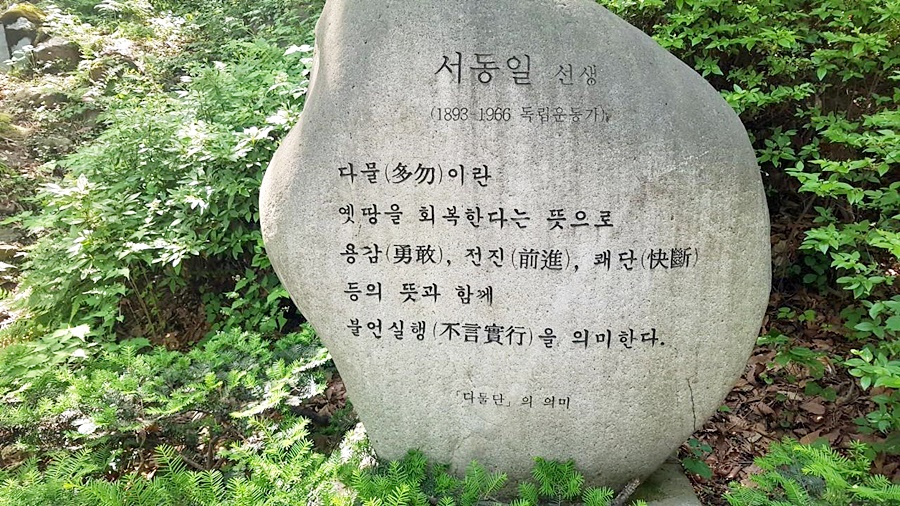 서동일 선생
(1893-1966 독립운동가)
다물(多勿)이란
옛땅을 회복한다는 뜻으로
용감(勇敢), 전진(前進), 쾌단(快斷)
등의 뜻과 함께
불언실행(不言實行)을 의미한다.
「다물단」의 의미